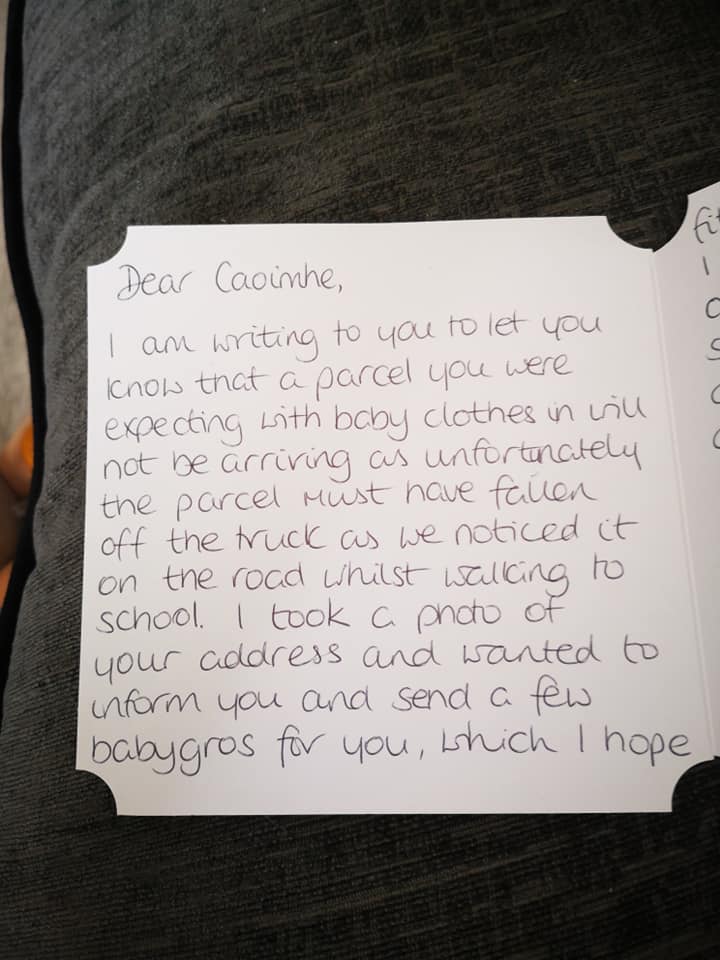 Dear Caoimhe,
I am writing to you to let you
know that a parcel you were
expecting with baby clothes in will
not be arriving as unfortunately
the parcel must have fallen
off the truck as we noticed it
on the road whilst walking to
school. I took a photo of
your address and wanted to
inform you and send a few
babygros for you, which I hope
I